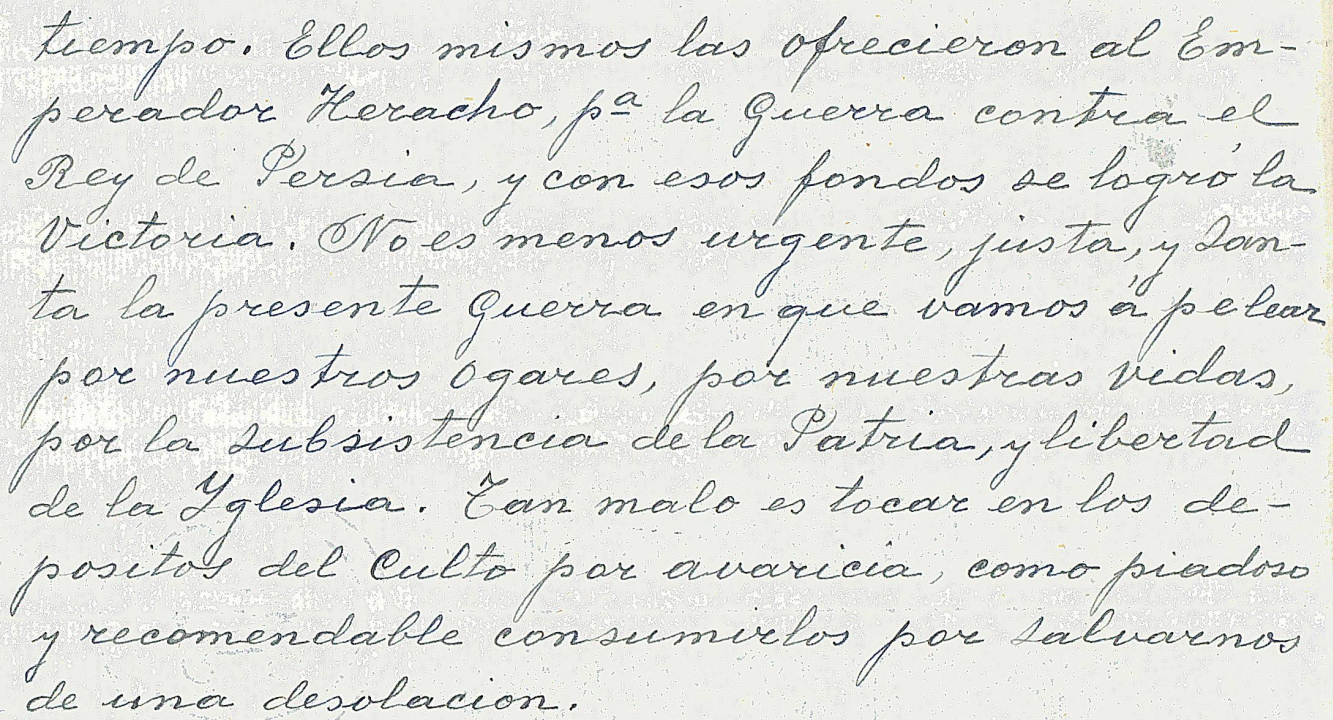 tiempo. Ellos mismos las ofrecieron al Em-
perador Heracho, pª la Guerra contra el
Rey de Persia, y con esos fondos se logró la
Victoria. No es menos urgente, justa, y San-
ta la presente Guerra en que vamos á pelear
por nuestros Ogares, por nuestras vidas,
por la subsistencia de la Patria, y libertad
de la Yglesia. Tan malo es tocar en los de-
positos del Culto por avaricia, como piadoso
y recomendable consumirlos por salvarnos
de una desolacion.